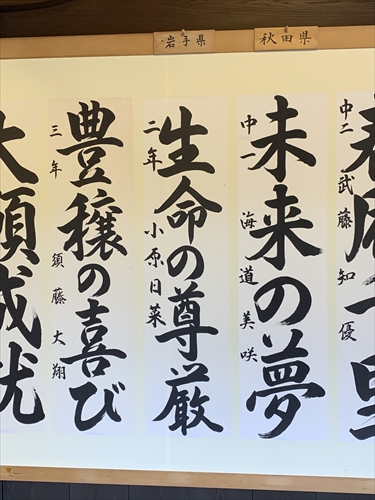 秋田県
岩手県
中二 武藤知優
未来の夢
中一 海道美咲
生命の尊厳
二年 小原日菜
豊穣の喜び
三年 須藤大翔
大願成就